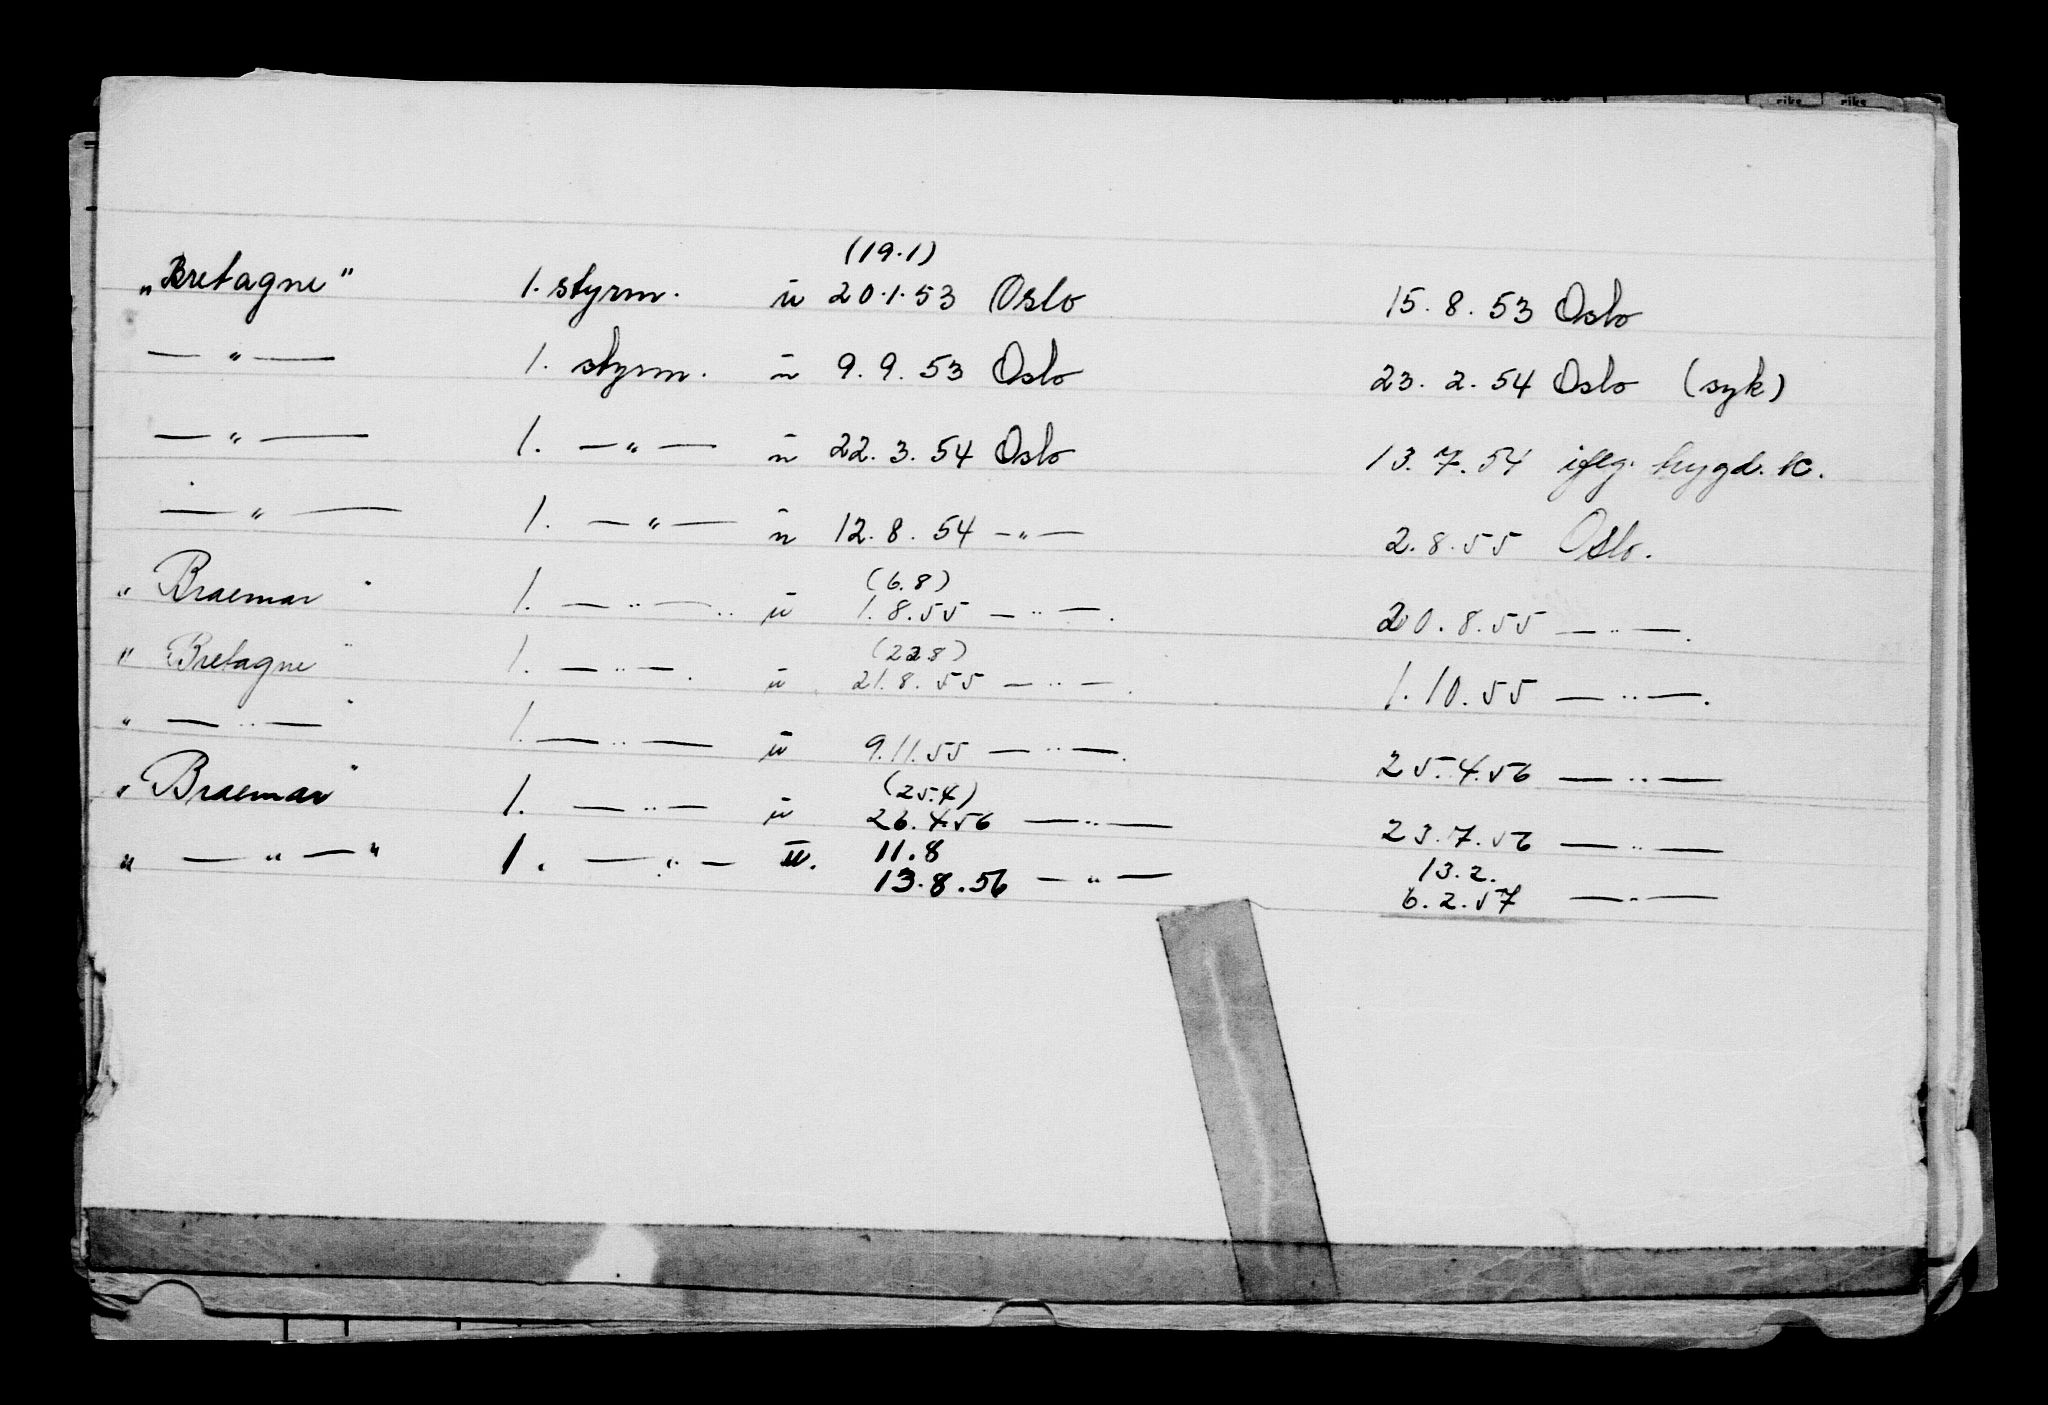 riks riks
(19.1)
„Bretagne" 1. styrm. u 20.1.53 Oslo 15.8.53 Oslo
— " — 1. styrm. u 9.9.53 Oslo 23.2.54 Oslo (syk)
— " — 1. — " — u 22.3.54 Oslo 13.7.54 iflg. trygd.k.
— " — 1. — " — u 12.8.54 — " — 2.8.55 Oslo.
(6.8)
" Braemar " 1. — " — u 1.8.55 — " — . 20.8.55 — " — .
(22.8)
" Bretagne " 1. — " — . u 21.8.55 — " — . 1.10.55 — " — .
" — " — " 1. — " — u 9.11.55 — " — . 25.4.56 — " —
(25.4)
" Braemar " 1. — " — u 26.4.56 — " — 23.7.56 — " —
11.8 13.2.
" — " — " 1. — " — u. 13.8.56 — " — 6.2.57 — " —